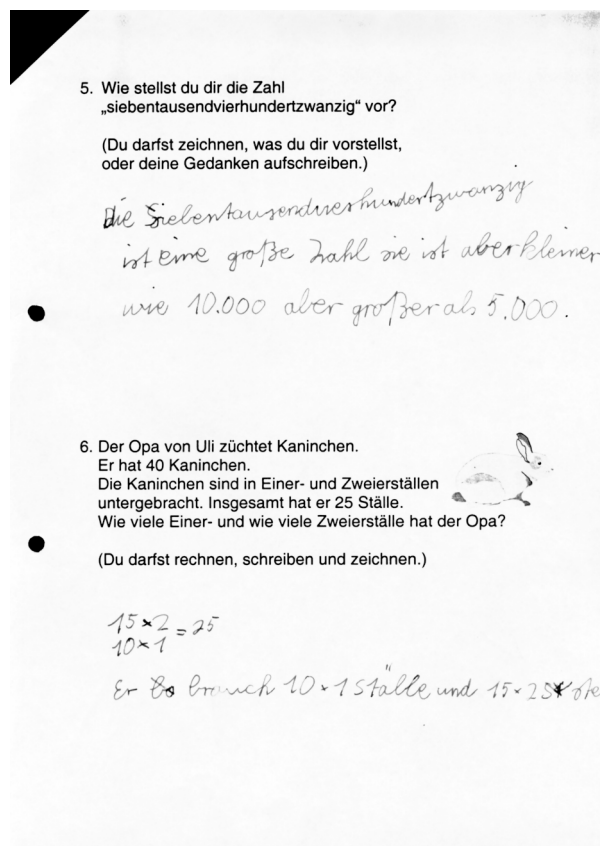 5. Wie stellst du dir die Zahl
„siebentausendvierhundertzwanzig“ vor?
(Du darfst zeichnen, was du dir vorstellst,
oder deine Gedanken aufschreiben.)
Die Siebentausendvierhundertzwanzig
ist eine große Zahl sie ist aber kleiner
wie 10.000 aber großer als 5.000.
6. Der Opa von Uli züchtet Kaninchen.
Er hat 40 Kaninchen.
Die Kaninchen sind in Einer- und Zweierställen
untergebracht. Insgesamt hat er 25 Ställe.
Wie viele Einer- und wie viele Zweierställe hat der Opa?
(Du darfst rechnen, schreiben und zeichnen.)
15×2
= 25
10×1
Er brauch 10×1 Ställe und 15×2